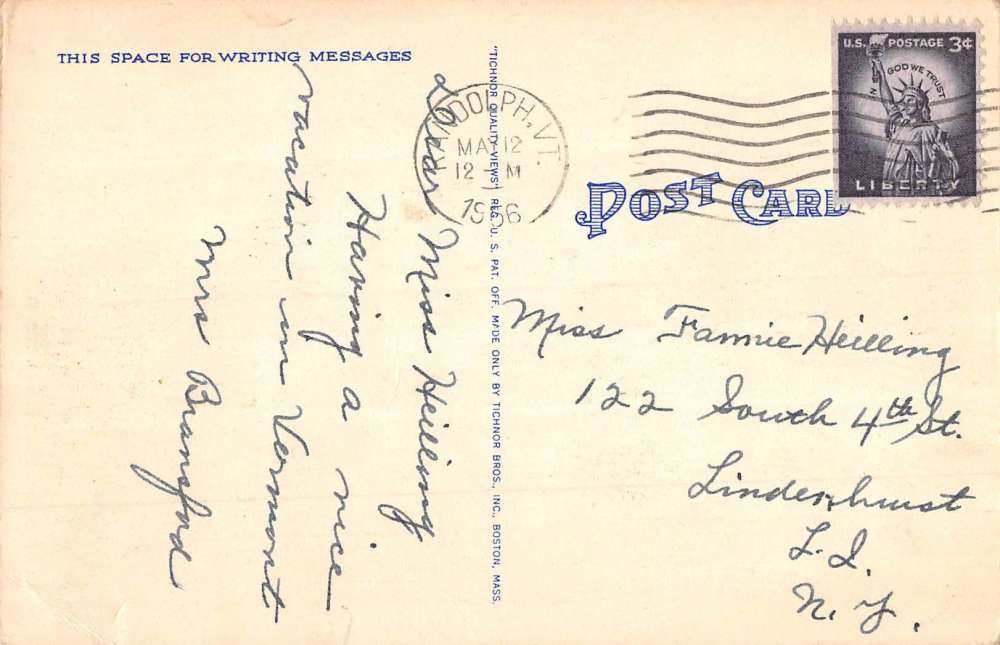 THIS SPACE FOR WRITING MESSAGES
Dear Miss Heilling
Having a nice
vacation in Vermont
Mrs Bransford
"TICHNOR QUALITY VIEWS" REG. U. S. PAT. OFF. MADE ONLY BY TICHNOR BROS., INC., BOSTON, MASS.
RANDOLPH, VT.
MAY 12
12 M
1956
U.S. POSTAGE 3¢
IN GOD WE TRUST
LIBERTY
POST CARD
Miss Fannie Heilling
122 South 4th St.
Lindenhurst
L. I.
N. Y.